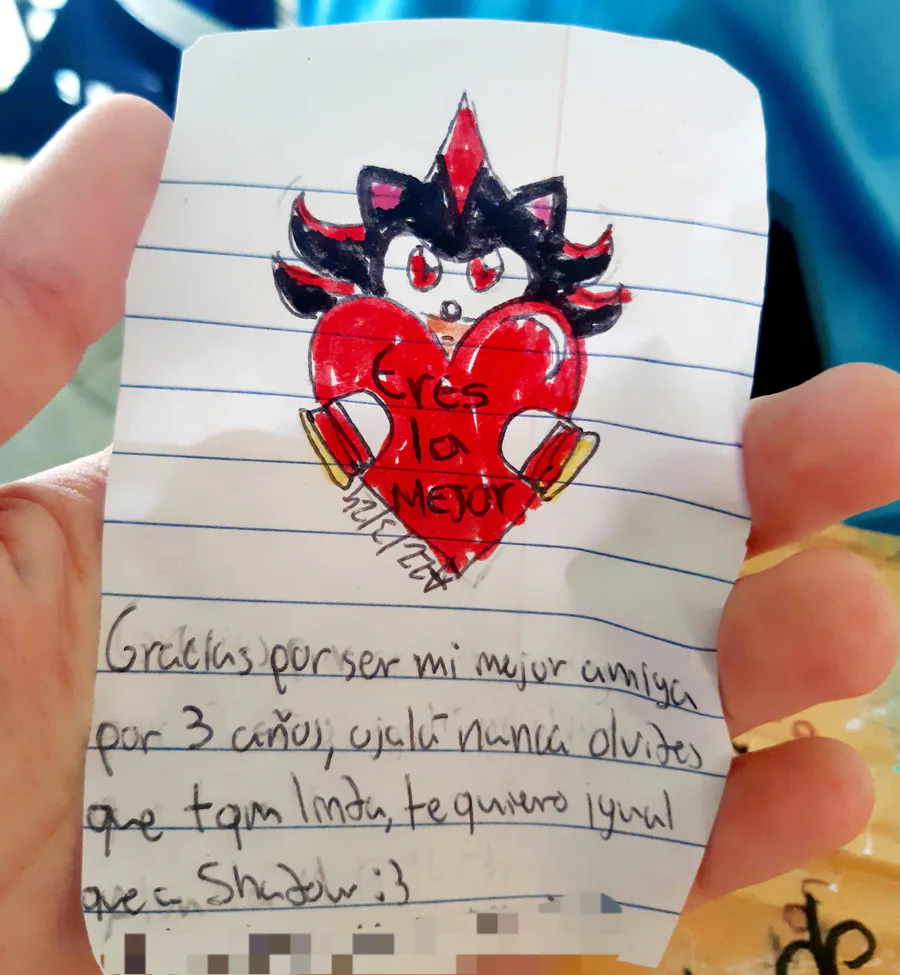 Eres
la
MEJOR
22/3/24
Gracias por ser mi mejor amiga
por 3 años, ojalá nunca olvides
que tqm linda, te quiero igual
que a Shadow :3